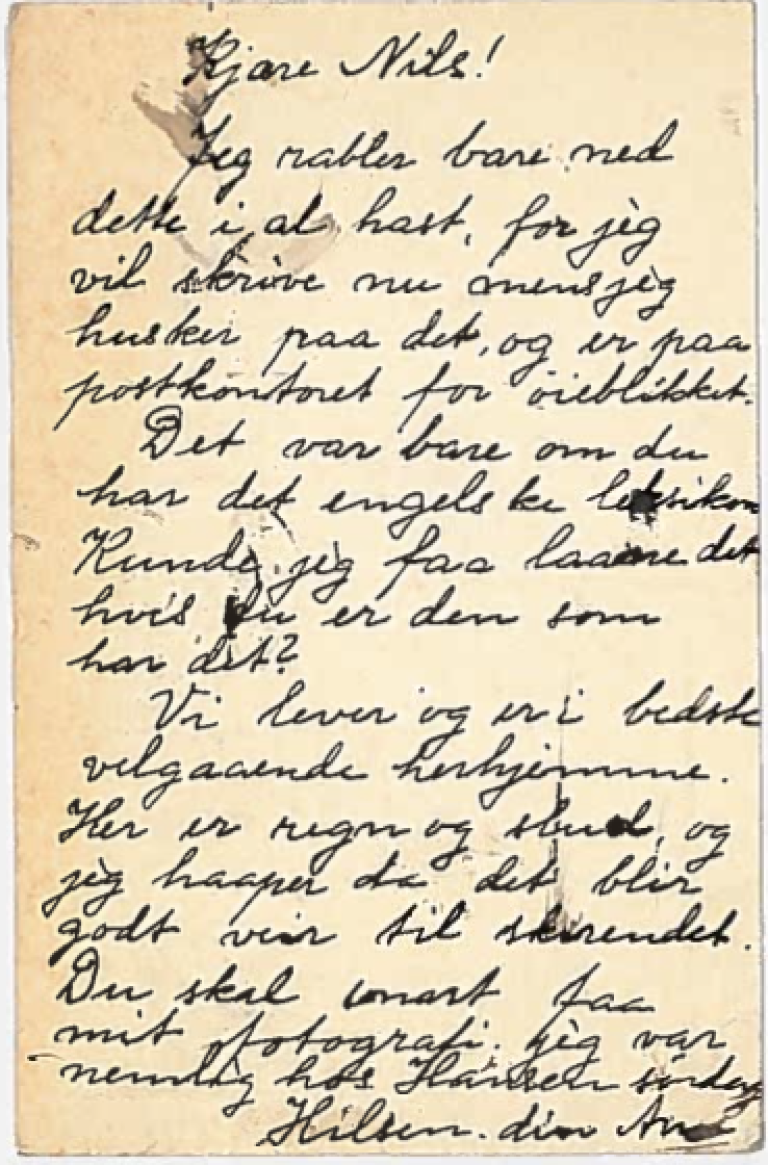 Kjære Nils!
Jeg rabler bare ned
dette i al hast, for jeg
vil skrive nu mens jeg
husker paa det, og er paa
postkontoret for øieblikket.
Det var bare om du
har det engelske leksikon
Kunde jeg faa laane det
hvis du er den som
har det?
Vi lever og er i bedste
velgaaende herhjemme.
Her er regn og slud, og
jeg haaper da det blir
godt veir til skirendet.
Du skal snart faa
mit fotografi. jeg var
nemlig hos Hansen søndag
Hilsen. din